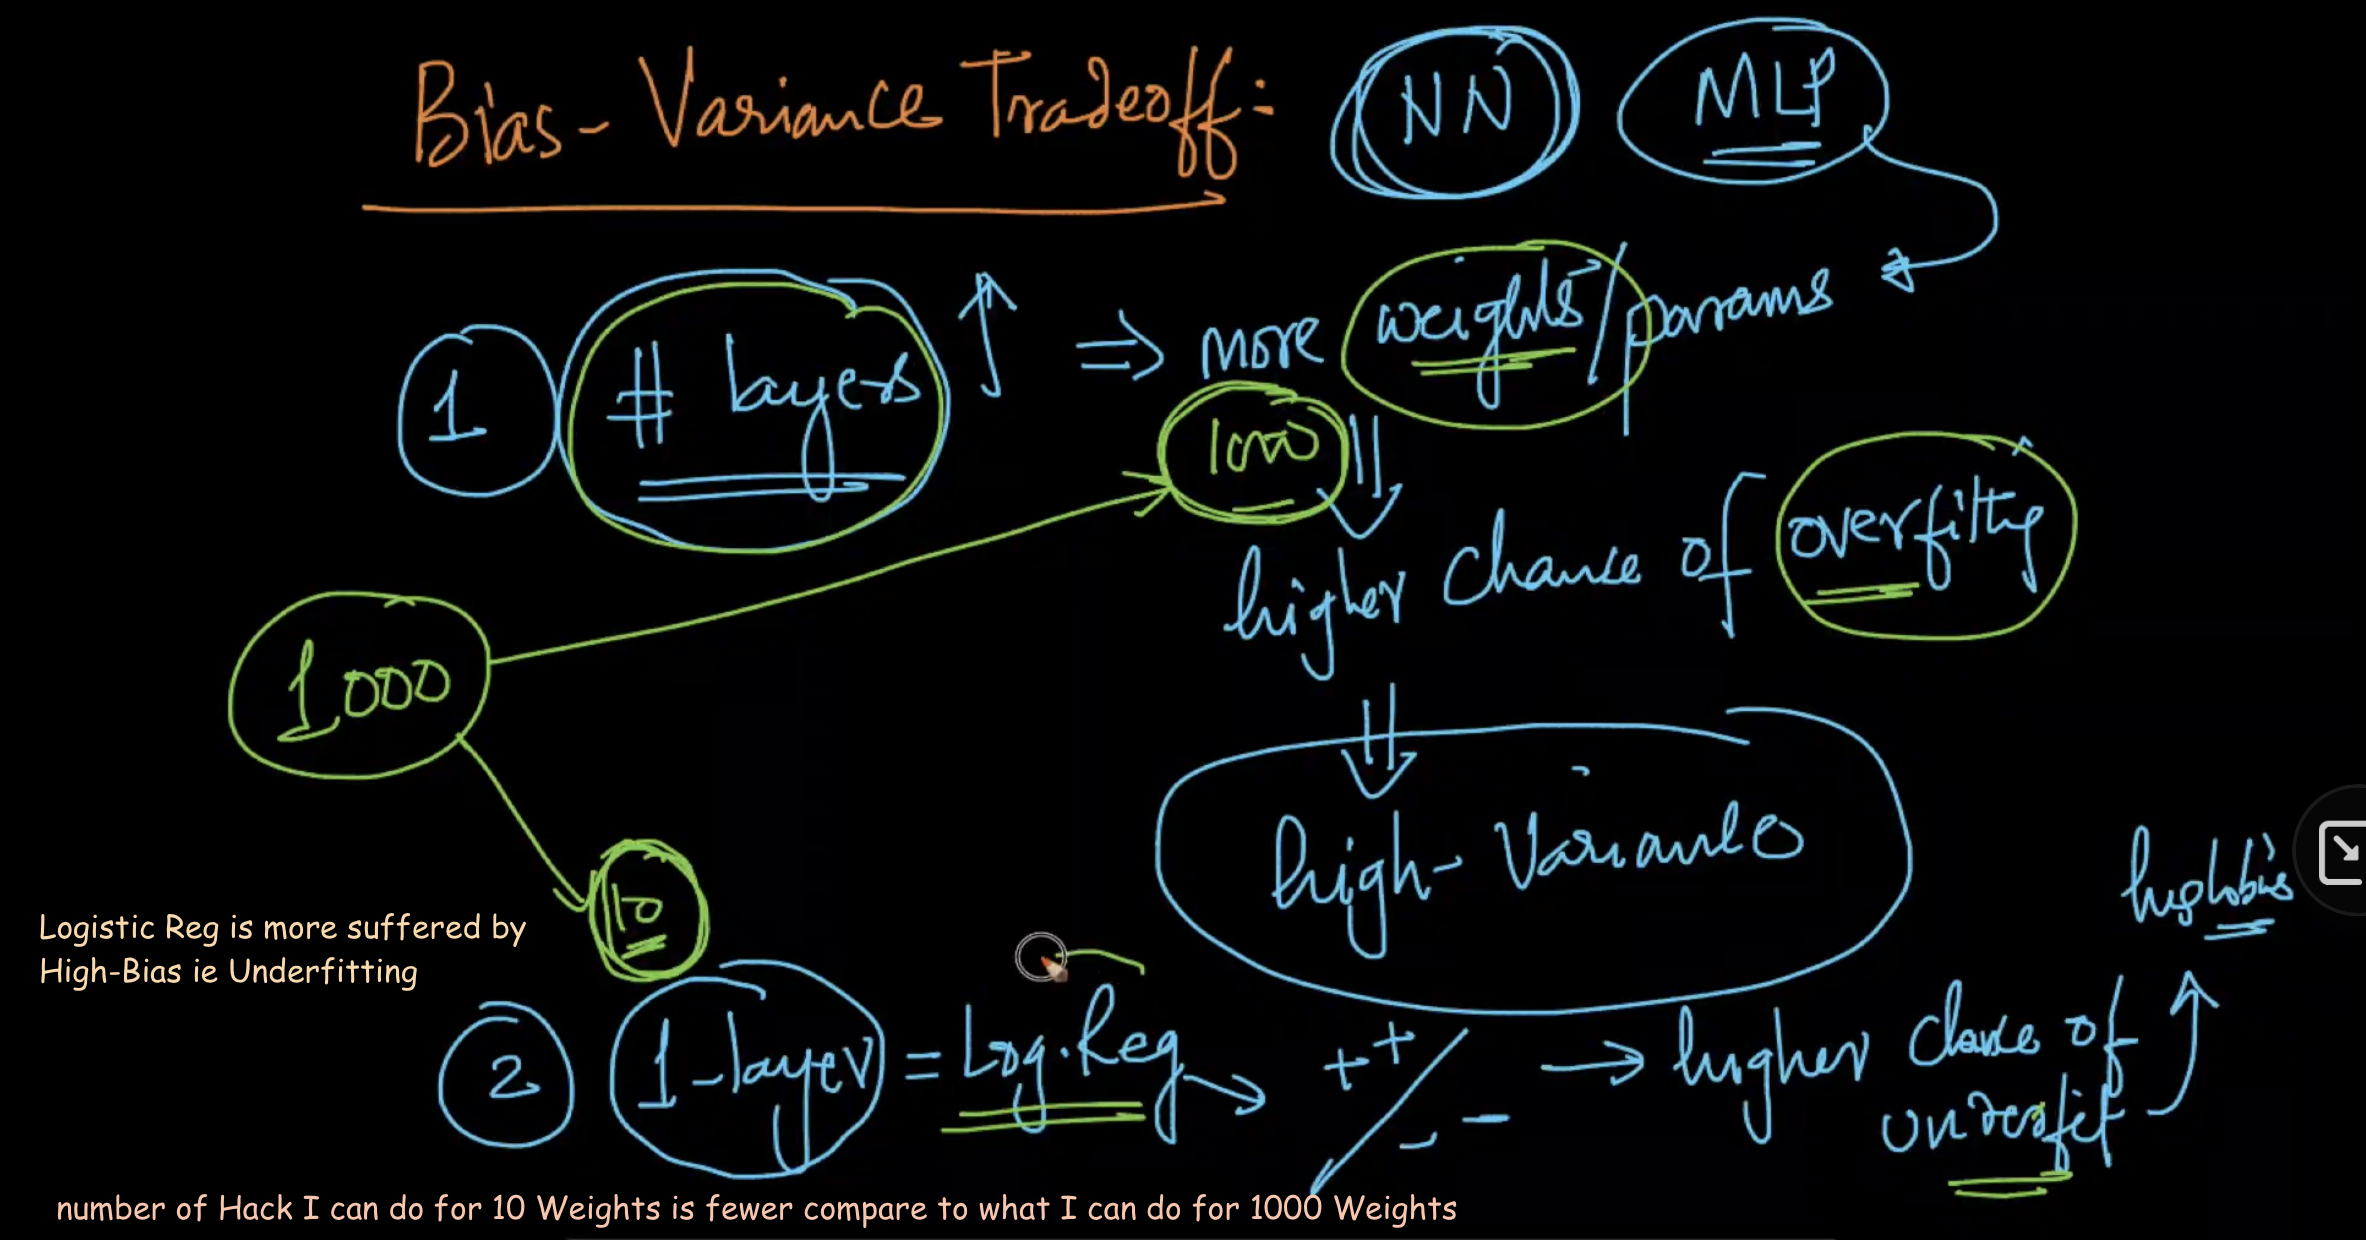 Bias-Variance Tradeoff:
NN
MLP
1
# layers ↑ ⇒ more weights/params
1000
higher chance of overfitting
1000
high-Variance
10
high bias
Logistic Reg is more suffered by
High-Bias ie Underfitting
2
1-layer = Log.Reg → + + / - - → higher chance of
underfit
number of Hack I can do for 10 Weights is fewer compare to what I can do for 1000 Weights